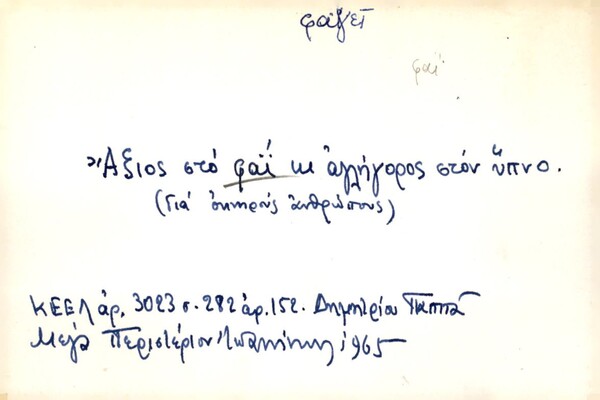 φαγεῖ
φαΐ
Ἄξιος στό φαΐ κι ἀγλήγορος στόν ὕπνο.
(Γιά ὀκνηρούς ἀνθρώπους)
ΚΕΕΛ ἀρ. 3023 σ. 282 ἀρ. 152. Δημητρίου Παππᾶ
Μεγα Περιστέριον Ἰωαννίνων, 1965